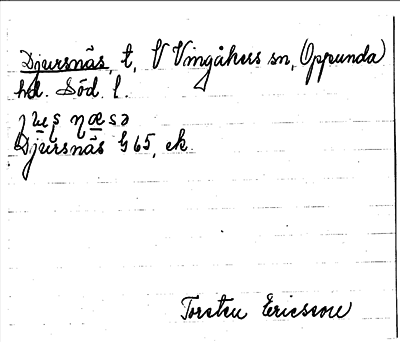 Djursnäs, t, V Vingåkers sn, Oppunda
hd. Söd. l.
Djursnäs G 65, ek.
Torsten Ericsson